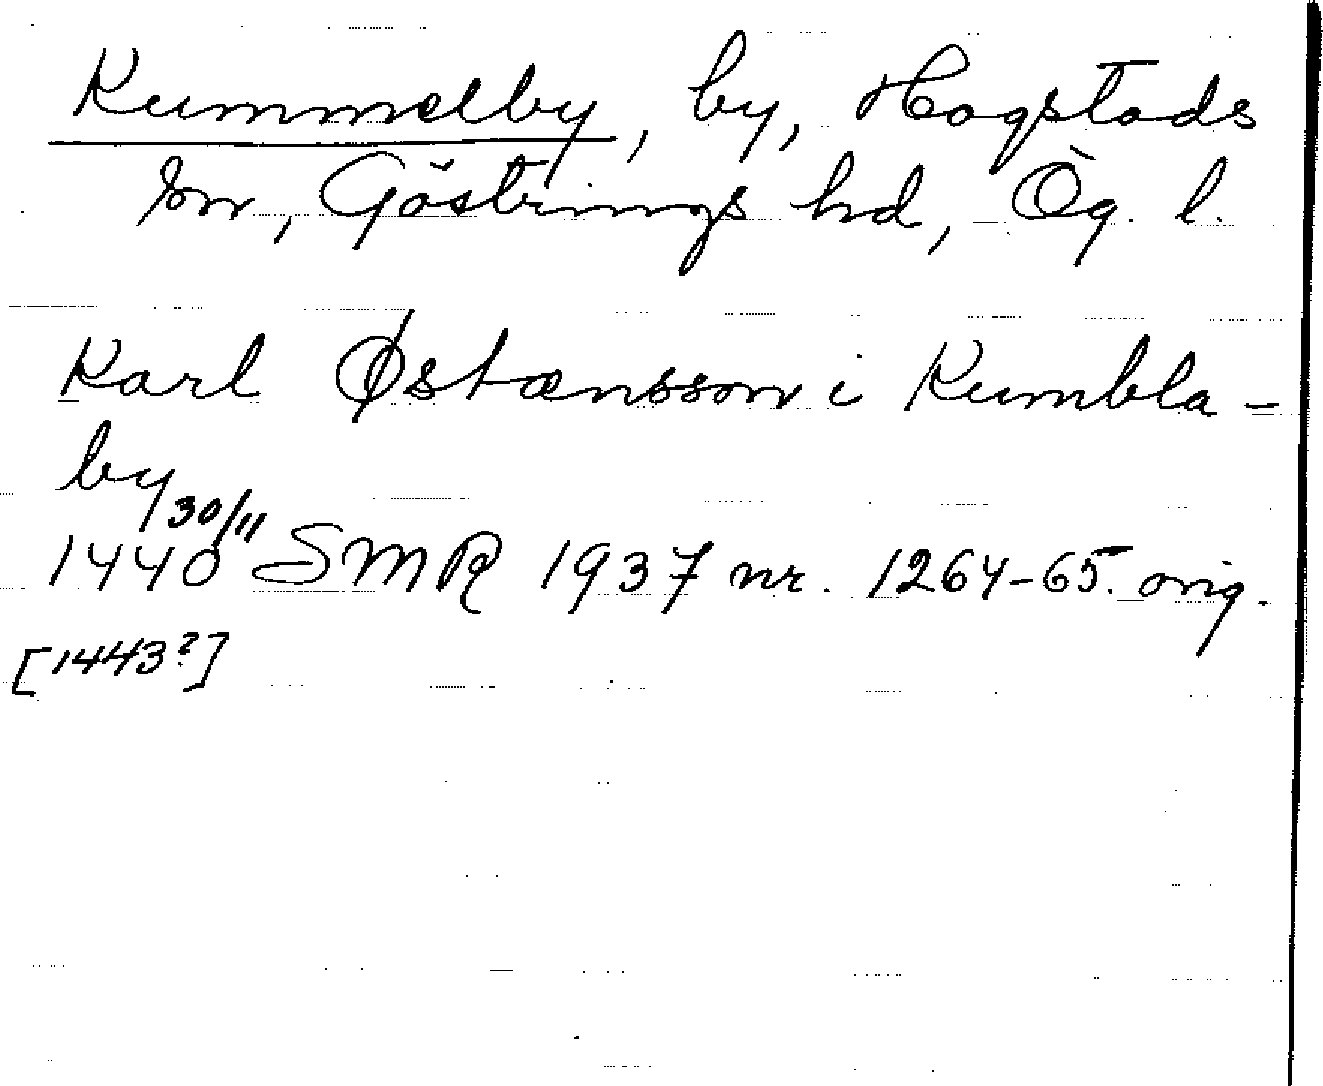 Kummelby, by, Hogstads
sn, Göstrings hd, Ög. l.
Karl Østænsson i Kumbla-
by
30/11
1440 SMR 1937 nr. 1264-65. orig.
[1443?]